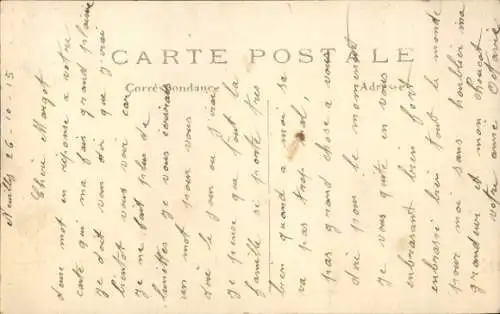 CARTE POSTALE
Correspondance
Adresse
Neuilles 26-10-15
Chère Margot
deux mot en réponse a votre
carte qui ma fais grand plaisir
je doit vous dir que j'irai
bientot vous voir car
je ne fait plus de
lunettes je vous écrirais
un mot pour vous
dire le jour ou j'irai
je pense que tout la
famille se porte tres
bien quand a moi sa
va pas trop mal,
pas grand chose a vous
dire pour le moment
je vous quitte en vous
embrassant bien fort
embrassé bien tout le monde
pour moi sans oublier ma
grandeur et mon
votre amie